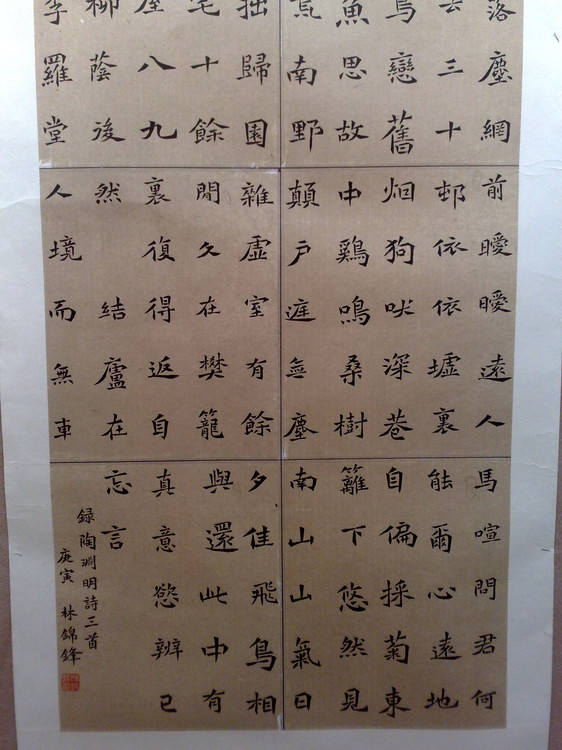 落塵網
去三十
鳥戀舊
魚思故
荒南野
拙歸園
宅十餘
屋八九
柳蔭後
李羅堂
前曖曖遠人
邨依依墟裏
烟狗吠深巷
中鷄鳴桑樹
顛戶庭無塵
雜虛室有餘
閒久在樊籠
裏復得返自
然 結廬在
人境而無車
馬喧問君何
能爾心遠地
自偏採菊東
籬下悠然見
南山山氣日
夕佳飛鳥相
與還此中有
真意慾辨已
忘言
録陶淵明詩三首
庚寅 林錦鋒